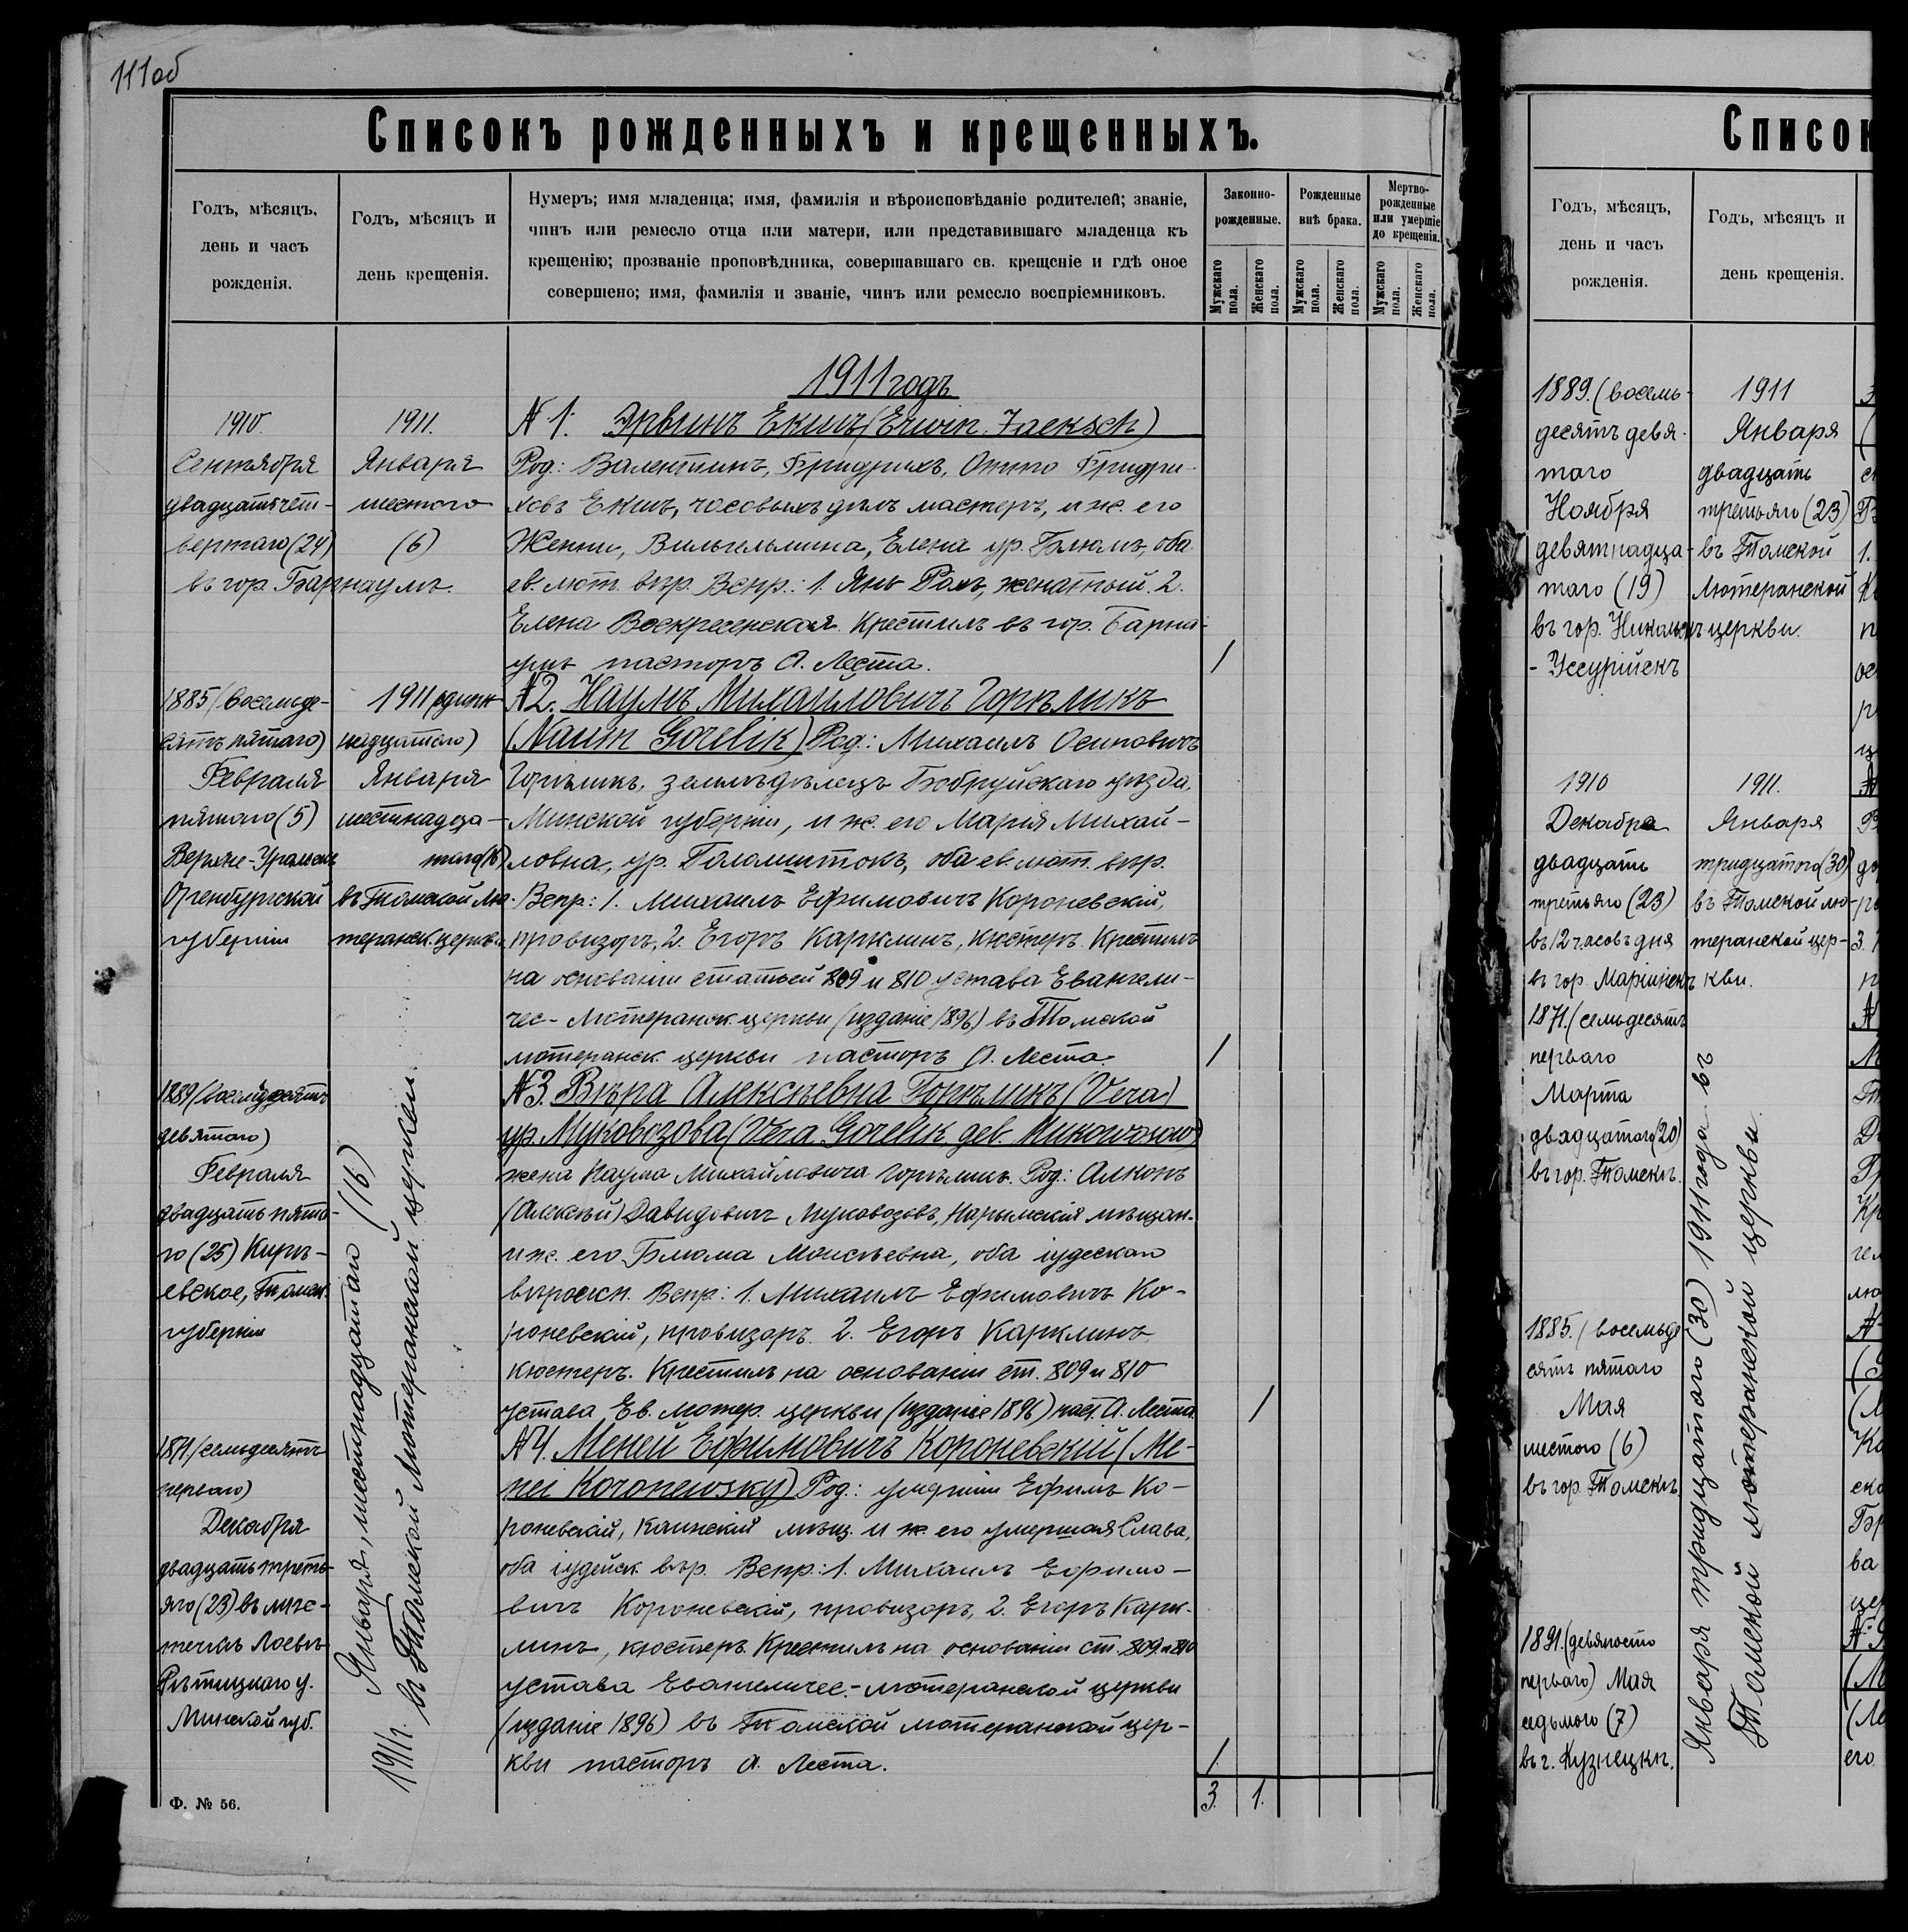 111об
Списокъ рожденныхъ и крещенныхъ.
Годъ, мѣсяцъ,
день и часъ
рожденія.
Годъ, мѣсяцъ и
день крещенія.
Нумеръ; имя младенца; имя, фамилія и вѣроисповѣданіе родителей; званіе,
чинъ или ремесло отца или матери, или представившаго младенца къ
крещенію; прозваніе проповѣдника, совершавшаго св. крещеніе и гдѣ оное
совершено; имя, фамилія и званіе, чинъ или ремесло воспріемниковъ.
Законно-
рожденные.
Рожденные
внѣ брака.
Мертво-
рожденные
или умершіе
до крещенія.
Мужскаго
пола.
Женскаго
пола.
Мужскаго
пола.
Женскаго
пола.
Мужскаго
пола.
Женскаго
пола.
1911 годъ
1910.
Сентября
двадцать чет-
вертаго (24)
въ гор. Барнаулѣ.
1911.
Января
шестого
(6)
№ 1. Эрвинъ Екшъ (Erwin Jaeksch)
Род: Валентинъ, Фридрихъ, Отто Фридри-
ховъ Екшъ, часовыхъ дѣлъ мастеръ, и ж. его
Женни, Вильгельмина, Елена ур. Блюмъ, оба
ев. лют. вѣр. Вспр.: 1. Янъ Разъ, женатый. 2.
Елена Воскресенская. Крестилъ въ гор. Барна-
улѣ пасторъ А. Леста.
1
1885 (восемьде-
сятъ пятаго)
Февраля
пятого (5)
Верхне-Уральскъ
Оренбургской
губерніи
1911 (одинн
надцатаго)
Января
шестнадца-
таго (16)
въ Томской Лю-
теранск. церкви
№2. Наумъ Михаиловичъ Горѣликъ
(Naum Gorelik) Род: Михаилъ Осиповичъ
Горѣликъ, земледѣлецъ Бобруйскаго уѣзда,
Минской губерніи, и ж. его Марія Михай-
ловна, ур. Галамштокъ, оба ев. лют. вѣр.
Вспр: 1. Михаилъ Ефимовичъ Короневскій,
провизоръ, 2. Егоръ Карклинъ, кюстеръ. Крестилъ
на основаніи статьей 809 и 810 устава Евангели-
чес-Лютеранск. церкви (изданіе 1896) въ Томской
лютеранск. церкви пасторъ А. Леста.
1
1889 (восемьдесятъ
девятаго)
Февраля
двадцать пято-
го (25) Кирѣ-
евское, Томск.
губерніи
№3. Вѣра Алексѣевна Горѣликъ (Vera)
ур. Муковозова (Vera Gorelik geb. Mukowosow)
жена Наума Михайловича Горѣликъ. Род: Алконъ
(Алексѣй) Давидовичъ Муковозовъ, Нарымскія мѣщан.
и ж. его Блюма Моисѣевна, оба іудескаго
вѣроисп. Вспр: 1. Михаилъ Ефимовичъ Ко-
роневскій, провизоръ. 2. Егоръ Карклинъ
кюстеръ. Крестилъ на основаніи ст. 809 и 810
устава Ев. лютер. церкви (изданіе 1896) паст. А. Леста.
1
1871 (семьдесятъ
перваго)
Декабря
двадцать треть-
яго (23) въ мѣс-
течкѣ Лоевъ
Рѣчицкаго у.
Минской губ.
1911 г. Января, шестнадцатаго (16)
въ Томской Лютеранской церкви
№4. Меней Ефимовичъ Короневскій (Me-
nei Koronewsky) Род: умершій Ефимъ Ко-
роневскій, Каинскій мѣщ. и ж. его умершая Слава,
оба іудейск. вѣр. Вспр: 1. Михаилъ Ефимо-
вичъ Короневскій, провизоръ, 2. Егоръ Карк-
линъ, кюстеръ. Крестилъ на основаніи ст. 809 и 810
устава Евангеличес.-лютеранской церкви
(изданіе 1896) въ Томской лютеранской цер-
кви пасторъ А. Леста.
1.
3. 1.
Ф. № 56.
Список
Годъ, мѣсяцъ,
день и часъ
рожденія.
Годъ, мѣсяцъ и
день крещенія.
1889. (восемь-
десятъ девя-
таго
Ноября
девятнадца-
таго (19)
въ гор. Никольскъ
-Уссурійскъ
1911
Января
двадцать
третьяго (23)
въ Томской
Лютеранской
церкви.
1910
Декабря
двадцать
третьяго (23)
въ 12 часовъ дня
въ гор. Маріинскъ
1911.
Января
тридцатого (30)
въ Томской лю-
теранской цер-
кви.
1871. (семьдесятъ
перваго
Марта
двадцатаго (20)
въ гор. Томскѣ.
1885. (восемьде-
сятъ пятаго
Мая
шестого (6)
въ гор. Томскѣ
1891. (девяносто
перваго) Мая
седьмого (7)
въ г. Кузнецкѣ.
Января тридцатаго (30) 1911 года въ
Томской лютеранской церкви.